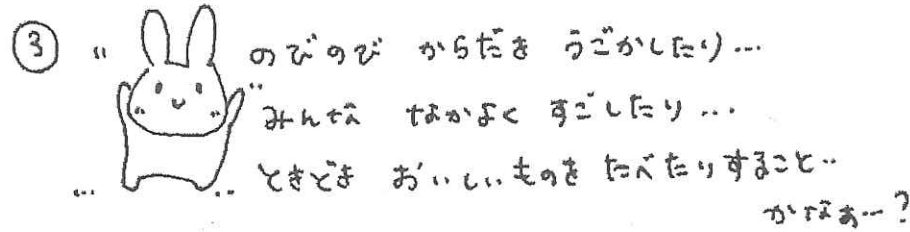 ③ のびのび からだを うごかしたり…
みんな なかよく すごしたり…
ときどき おいしいものを たべたりすること…
かなぁ…?